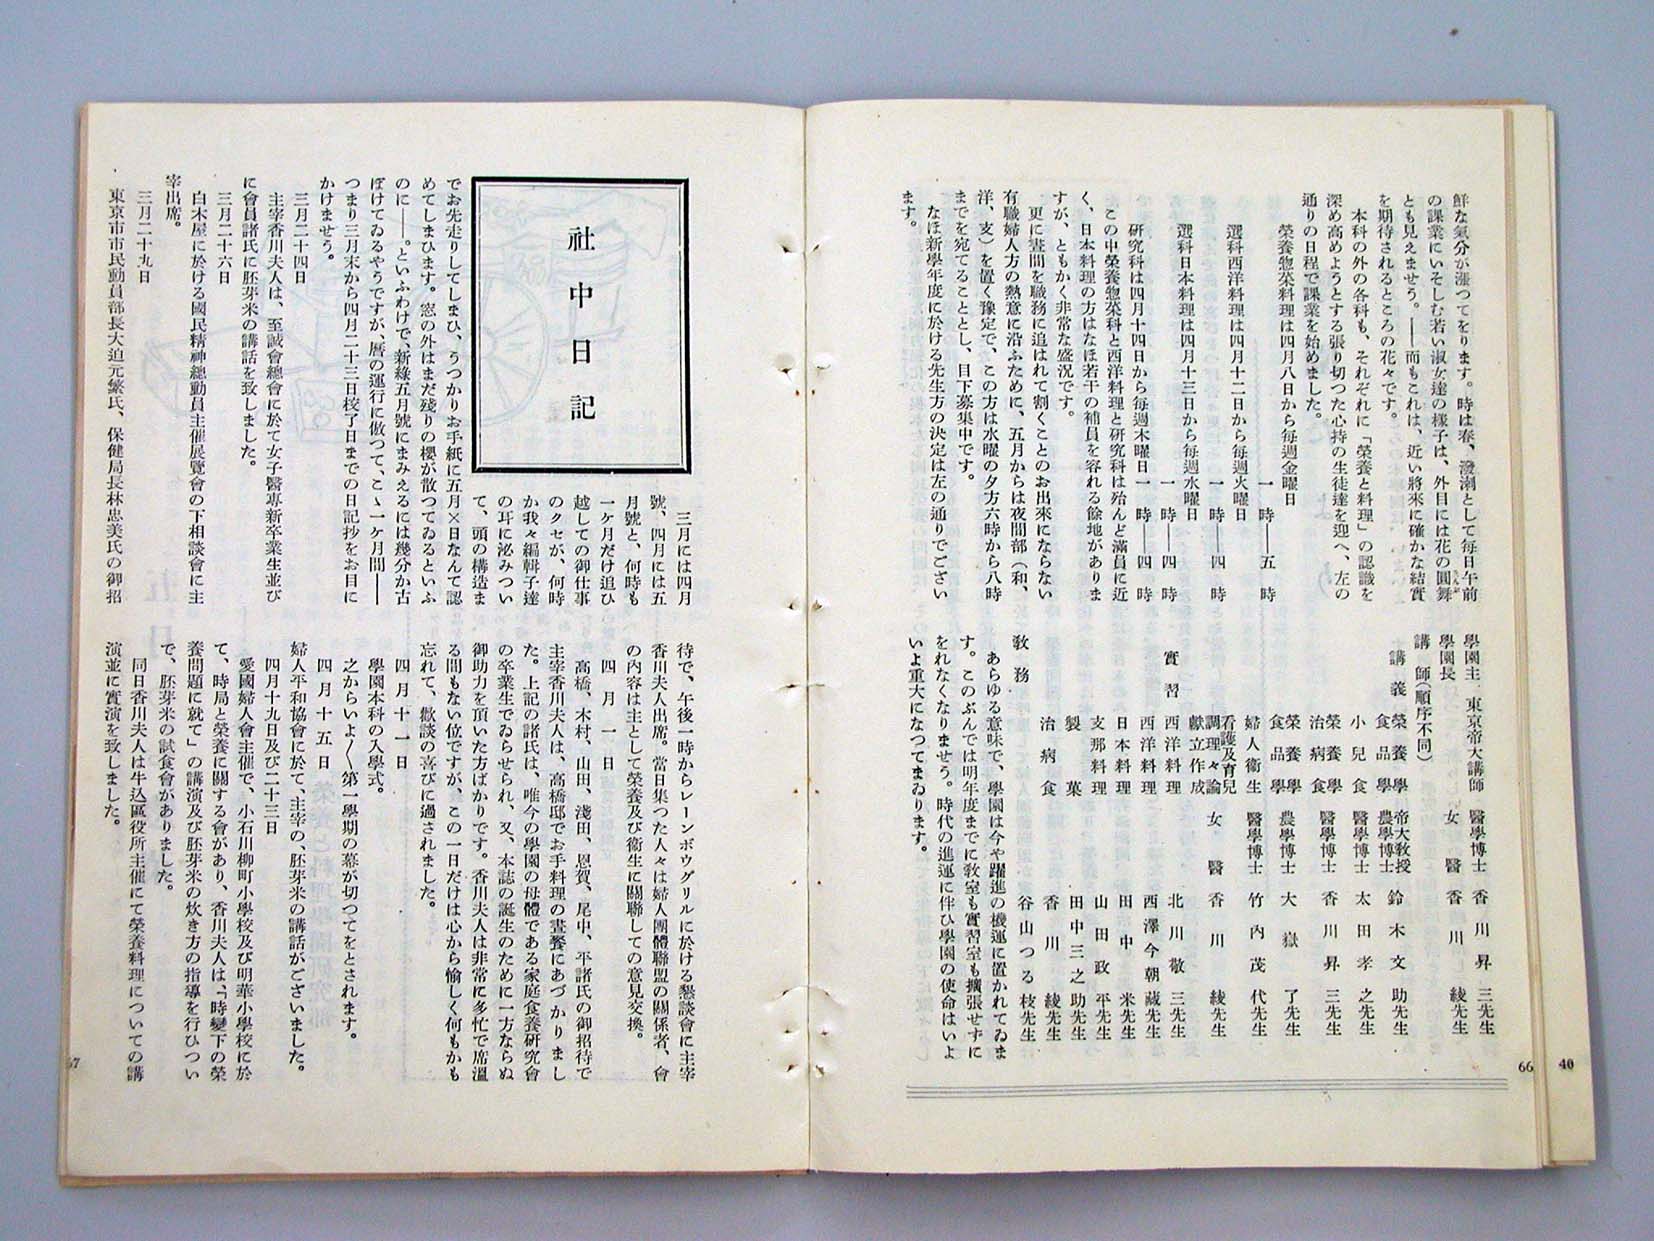 鮮な氣分が漲つてをります。時は春、潑溂として毎日午前
の課業にいそしむ若い淑女達の樣子は、外目には花の圓舞
とも見えませう。――而もこれは、近い將來に確かな結實
を期待されるところの花々です。
本科の外の各科も、それぞれに「榮養と料理」の認識を
深め高めようとする張り切つた心持の生徒達を迎へ、左の
通りの日程で課業を始めました。
榮養惣菜料理は四月八日から毎週金曜日
一時――五時
選科西洋料理は四月十二日から毎週火曜日
一時――四時
選科日本料理は四月十三日から毎週水曜日
一時――四時
研究科は四月十四日から毎週木曜日一時――四時
この中榮養惣菜科と西洋料理と研究科は殆んど滿員に近
く、日本料理の方はなほ若干の補員を容れる餘地がありま
すが、ともかく非常な盛況です。
更に晝間を職務に追はれて割くことのお出來にならない
有職婦人方の熱意に沿ふために、五月からは夜間部（和、
洋、支）を置く豫定で、この方は水曜の夕方六時から八時
までを宛てることとし、目下募集中です。
なほ新學年度に於ける先生方の決定は左の通りでござい
ます。
學園主 東京帝大講師 醫學博士 香川昇三先生
學園長 女醫 香川綾先生
講師（順序不同）
講義 榮養學 食品學 帝大教授 農學博士 鈴木文助先生
小兒食 醫學博士 太田孝之先生
榮養學 治病食 醫學博士 香川昇三先生
榮養學 食品學 農學博士 大嶽了先生
婦人衞生 醫學博士 竹內茂代先生
看護及育兒 調理々論 獻立作成 女醫 香川綾先生
實習 西洋料理 北川敬三先生
西洋料理 西澤今朝藏先生
日本料理 田中米先生
支那料理 山田政平先生
製菓 田中三之助先生
治病食 香川綾先生
敎務 谷山つる枝先生
あらゆる意味で、學園は今や躍進の機運に置かれてゐま
す。このぶんでは明年度までに敎室も實習室も擴張せずに
をれなくなりませう。時代の進運に伴ひ學園の使命はいよ
いよ重大になつてまゐります。
66
40
社中日記
三月には四月
號、四月には五
月號と、何時も
一ケ月だけ追ひ
越しての御仕事
のクセが、何時
か我々編輯子達
の耳に泌みつい
て、頭の構造ま
でお先走りしてしまひ、うつかりお手紙に五月×日なんて認
めてしまひます。窓の外はまだ殘りの櫻が散つてゐるといふ
のに――。といふわけで、新綠五月號にまみえるには幾分か古
ぼけてゐるやうですが、曆の運行に倣つて、こゝ一ケ月間――
つまり三月末から四月二十三日校了日までの日記抄をお目に
かけませう。
三月二十四日
主宰香川夫人は、至誠會總會に於て女子醫專新卒業生並び
に會員諸氏に胚芽米の講話を致しました。
三月二十六日
白木屋に於ける國民精神總動員主催展覽會の下相談會に主
宰出席。
三月二十九日
東京市市民動員部長大迫元繁氏、保健局長林忠美氏の御招
待で、午後一時からレーンボウグリルに於ける懇談會に主宰
香川夫人出席。當日集つた人々は婦人團體聯盟の關係者、會
の內容は主として榮養及び衞生に關聯しての意見交換。
四月一日
高橋、木村、山田、淺田、恩賀、尾中、平諸氏の御招待で
主宰香川夫人は、高橋邸でお手料理の晝饗にあづかりまし
た。上記の諸氏は、唯今の學園の母體である家庭食養研究會
の卒業生でゐらせられ、又、本誌の誕生のために一方ならぬ
御助力を頂いた方ばかりです。香川夫人は非常に多忙で席溫
る間もない位ですが、この一日だけは心から愉しく何もかも
忘れて、歡談の喜びに過されました。
四月十一日
學園本科の入學式。
之からいよ〱第一學期の幕が切つてをとされます。
四月十五日
婦人平和協會に於て、主宰の、胚芽米の講話がございました。
四月十九日及び二十三日
愛國婦人會主催で、小石川柳町小學校及び明華小學校に於
て、時局と榮養に關する會があり、香川夫人は、「時變下の榮
養問題に就て」の講演及び胚芽米の炊き方の指導を行ひつい
で、胚芽米の試食會がありました。
同日香川夫人は牛込區役所主催にて榮養料理についての講
演並に實演を致しました。
67